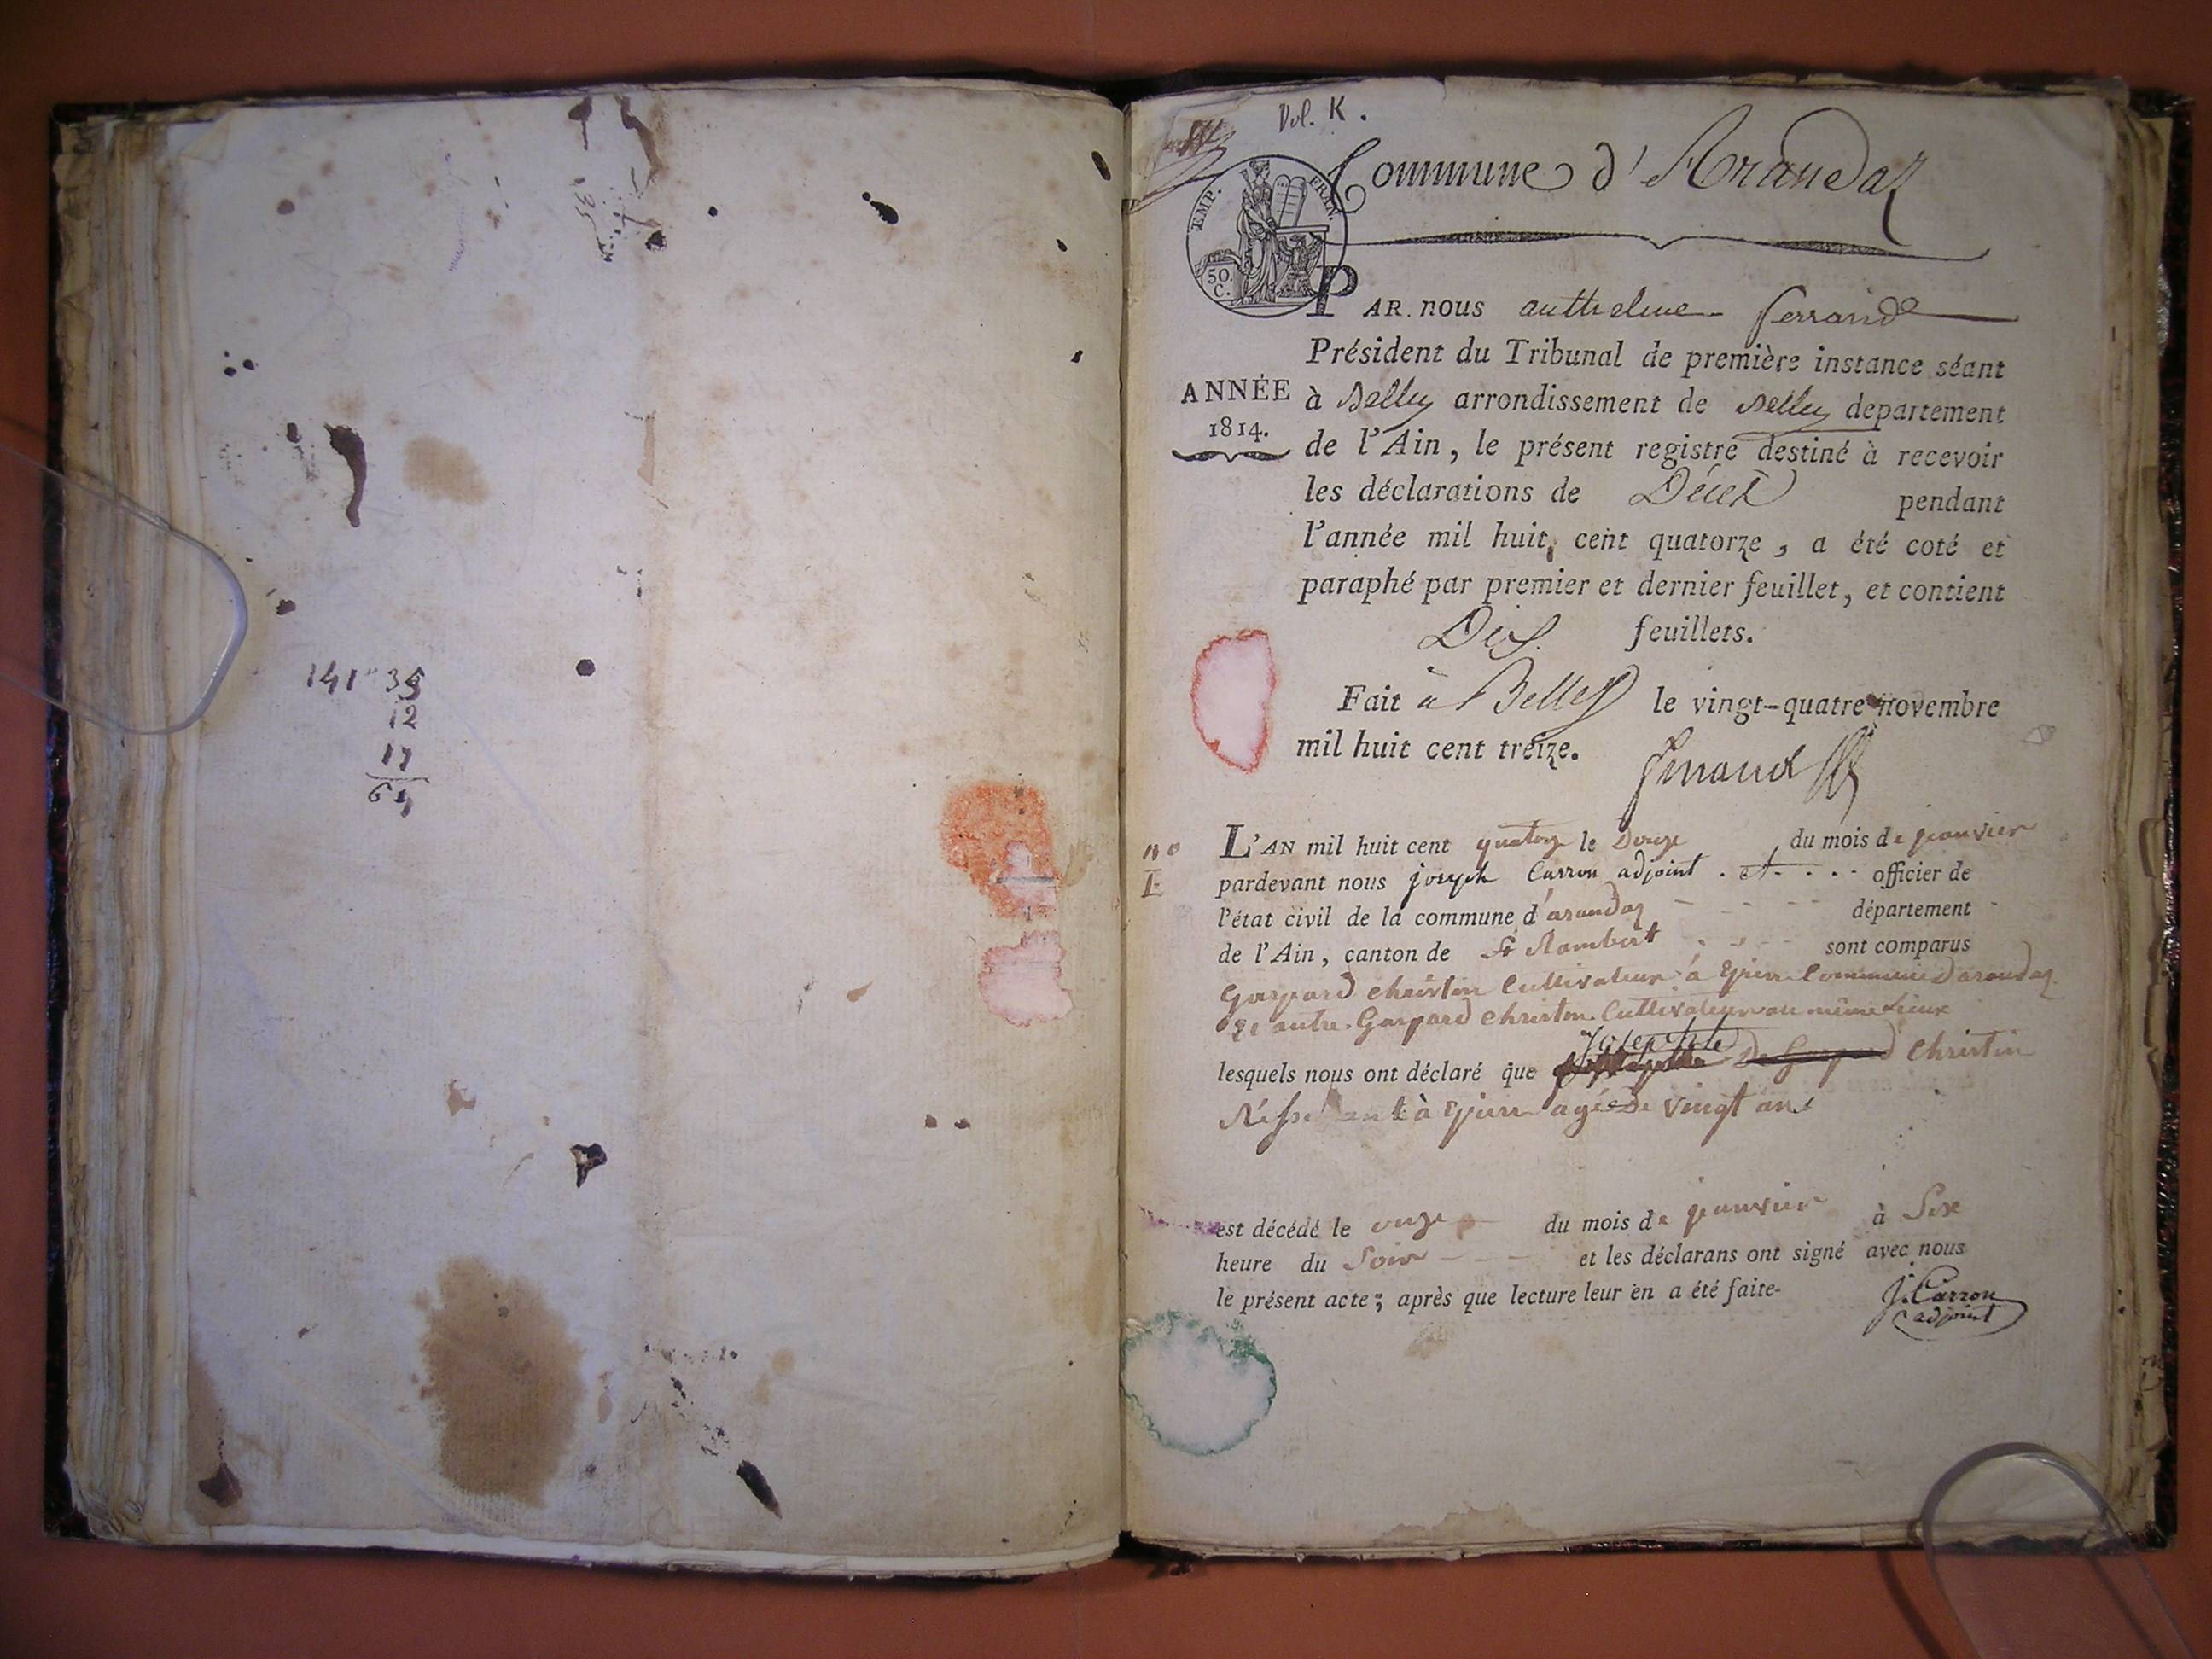 141 35
12
17
64
Vol. K.
Commune d'Arandas
TEMP. FRAN.
50 C.
PAR nous anthelme ferrand
Président du Tribunal de première instance séant
ANNÉE
1814.
à Belley arrondissement de Belley département
de l'Ain, le présent registre destiné à recevoir
les déclarations de Décès pendant
l'année mil huit cent quatorze, a été coté et
paraphé par premier et dernier feuillet, et contient
Dix feuillets.
Fait à Belley le vingt-quatre novembre
mil huit cent treize.
ferrand
n° 1
L'AN mil huit cent quatorze le Douze du mois de janvier
pardevant nous joseph Carron adjoint officier de
l'état civil de la commune d'arandas département
de l'Ain, canton de St Rambert sont comparus
Gaspard christin Cultivateur à Epierre Commune Darandas
autre Gaspard christin Cultivateur au même Lieux
Josephte
lesquels nous ont déclaré que De Gaspard Christin
à Epierre agée De vingt ans
est décédé le onze du mois de janvier à Six
heure du Soir et les déclarans ont signé avec nous
le présent acte; après que lecture leur en a été faite.
J. Carron
adjoint